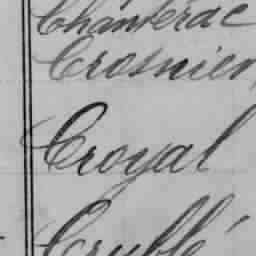 Chanterac
Crosnier
Croyal
Crublé